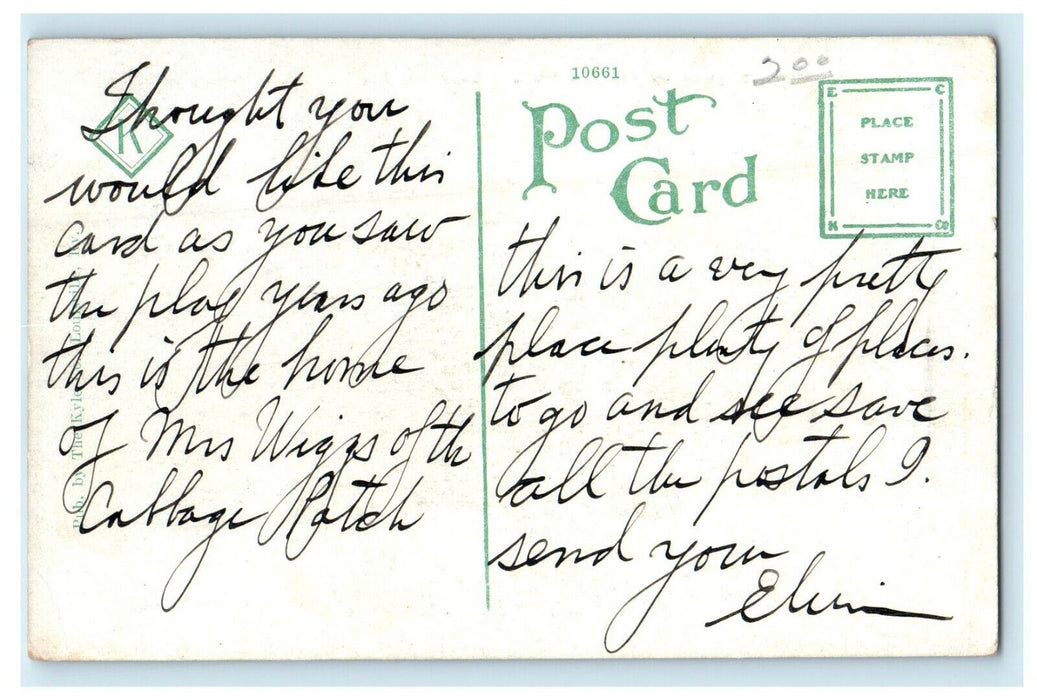 Thought you
would like this
card as you saw
the play years ago
this is the home
of Mrs Wiggs of the
Cabbage Patch
10661
2 00
Post
Card
E C
PLACE
STAMP
HERE
K Co
this is a very pretty
place plenty of places.
to go and see save
all the postals I.
send your
K
Pub. by The Kyle